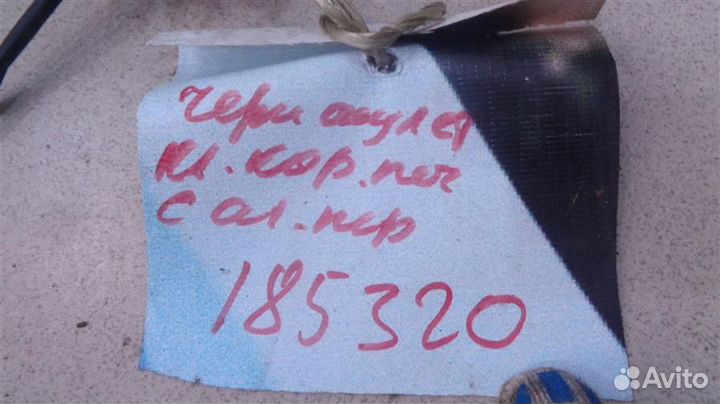 Чери амулет
кл. кор. печ
с ал. пер
185320
Avito